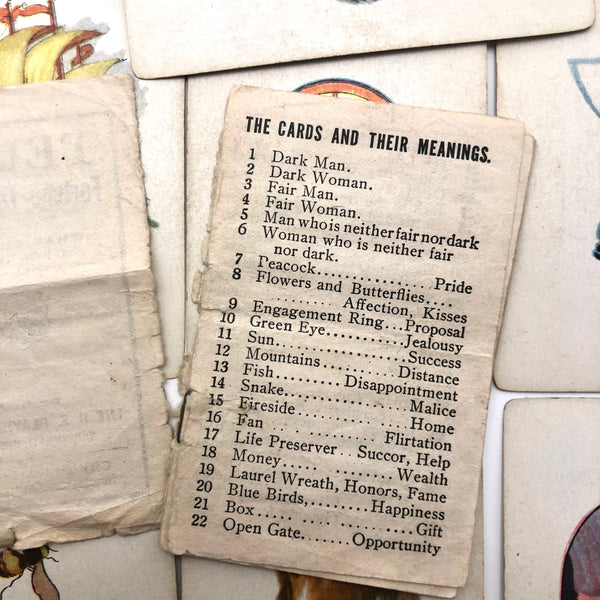 THE CARDS AND THEIR MEANINGS.
1 Dark Man.
2 Dark Woman.
3 Fair Man.
4 Fair Woman.
5 Man who is neither fair nor dark
6 Woman who is neither fair
nor dark.
7 Peacock................Pride
8 Flowers and Butterflies....
.......... Affection, Kisses
9 Engagement Ring...Proposal
10 Green Eye............Jealousy
11 Sun....................Success
12 Mountains..........Distance
13 Fish.........Disappointment
14 Snake..................Malice
15 Fireside................Home
16 Fan ...............Flirtation
17 Life Preserver..Succor, Help
18 Money..... .........Wealth
19 Laurel Wreath, Honors, Fame
20 Blue Birds,........Happiness
21 Box.......................Gift
22 Open Gate.......Opportunity